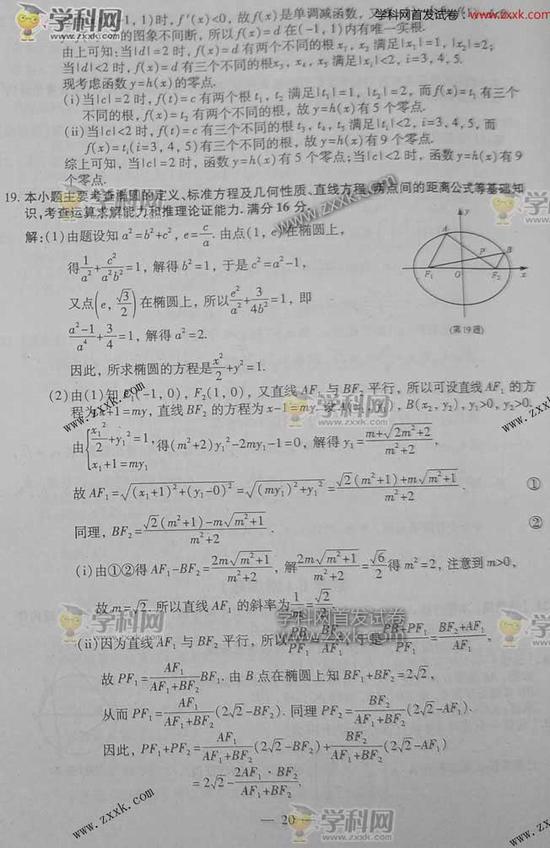 学科网首发试卷：www.zxxk.com
-1，1)时，f′(x)<0，故f(x)是单调减函数，又
的图象不间断，所以f(x)=d在(-1，1)内有唯一实根.
由上可知：当|d|=2时，f(x)=d有两个不同的根x₁，x₂满足|x₁|=1，|x₂|=2；
当|d|<2时，f(x)=d有三个不同的根x₃，x₄，x₅满足|xᵢ|<2，i=3，4，5.
现考虑函数y=h(x)的零点.
(ⅰ)当|c|=2时，f(t)=c有两个根t₁，t₂满足|t₁|=1，|t₂|=2，而f(x)=t₁有三个
不同的根，f(x)=t₂有两个不同的根，故y=h(x)有5个零点.
(ⅱ)当|c|<2时，f(t)=c有三个不同的根t₃，t₄，t₅满足|tᵢ|<2，i=3，4，5，而
f(x)=tᵢ(i=3，4，5)有三个不同的根，故y=h(x)有9个零点.
综上可知，当|c|=2时，函数y=h(x)有5个零点；当|c|<2时，函数y=h(x)有9
个零点.
19. 本小题主要考查椭圆的定义、标准方程及几何性质、直线方程、两点间的距离公式等基础知
识，考查运算求解能力和推理论证能力. 满分16分.
解：(1)由题设知a²=b²+c²，e=c/a. 由点(1，e)在椭圆上，
得1/a²+c²/(a²b²)=1，解得b²=1，于是c²=a²-1，
又点(e，√3/2)在椭圆上，所以e²/a²+3/(4b²)=1，即
(a²-1)/a⁴+3/4=1，解得a²=2.
因此，所求椭圆的方程是x²/2+y²=1.
y
A
P
B
F₁
O
F₂
x
(第19题)
(2)由(1)知F₁(-1，0)，F₂(1，0)，又直线AF₁与BF₂平行，所以可设直线AF₁的方
程为x+1=my，直线BF₂的方程为x-1=my. 设A(x₁，y₁)，B(x₂，y₂)，y₁>0，y₂>0.
由{x₁²/2+y₁²=1，x₁+1=my₁ 得(m²+2)y₁²-2my₁-1=0，解得y₁=(m+√(2m²+2))/(m²+2)，
故AF₁=√((x₁+1)²+(y₁-0)²)=√((my₁)²+y₁²)=(√2(m²+1)+m√(m²+1))/(m²+2). ①
同理，BF₂=(√2(m²+1)-m√(m²+1))/(m²+2). ②
(ⅰ)由①②得AF₁-BF₂=2m√(m²+1)/(m²+2)，解2m√(m²+1)/(m²+2)=√6/2得m²=2，注意到m>0，
故m=√2. 所以直线AF₁的斜率为1/m=√2/2.
(ⅱ)因为直线AF₁与BF₂平行，所以PB/PF₁=BF₂/AF₁，于是(PB+PF₁)/PF₁=(BF₂+AF₁)/AF₁，
故PF₁=AF₁/(AF₁+BF₂)·BF₁. 由B点在椭圆上知BF₁+BF₂=2√2，
从而PF₁=AF₁/(AF₁+BF₂)(2√2-BF₂). 同理PF₂=BF₂/(AF₁+BF₂)(2√2-AF₁).
因此，PF₁+PF₂=AF₁/(AF₁+BF₂)(2√2-BF₂)+BF₂/(AF₁+BF₂)(2√2-AF₁)
=2√2-2AF₁·BF₂/(AF₁+BF₂).
— 20 —
学科网
www.zxxk.com
学科网首发试卷
www.zxxk.com